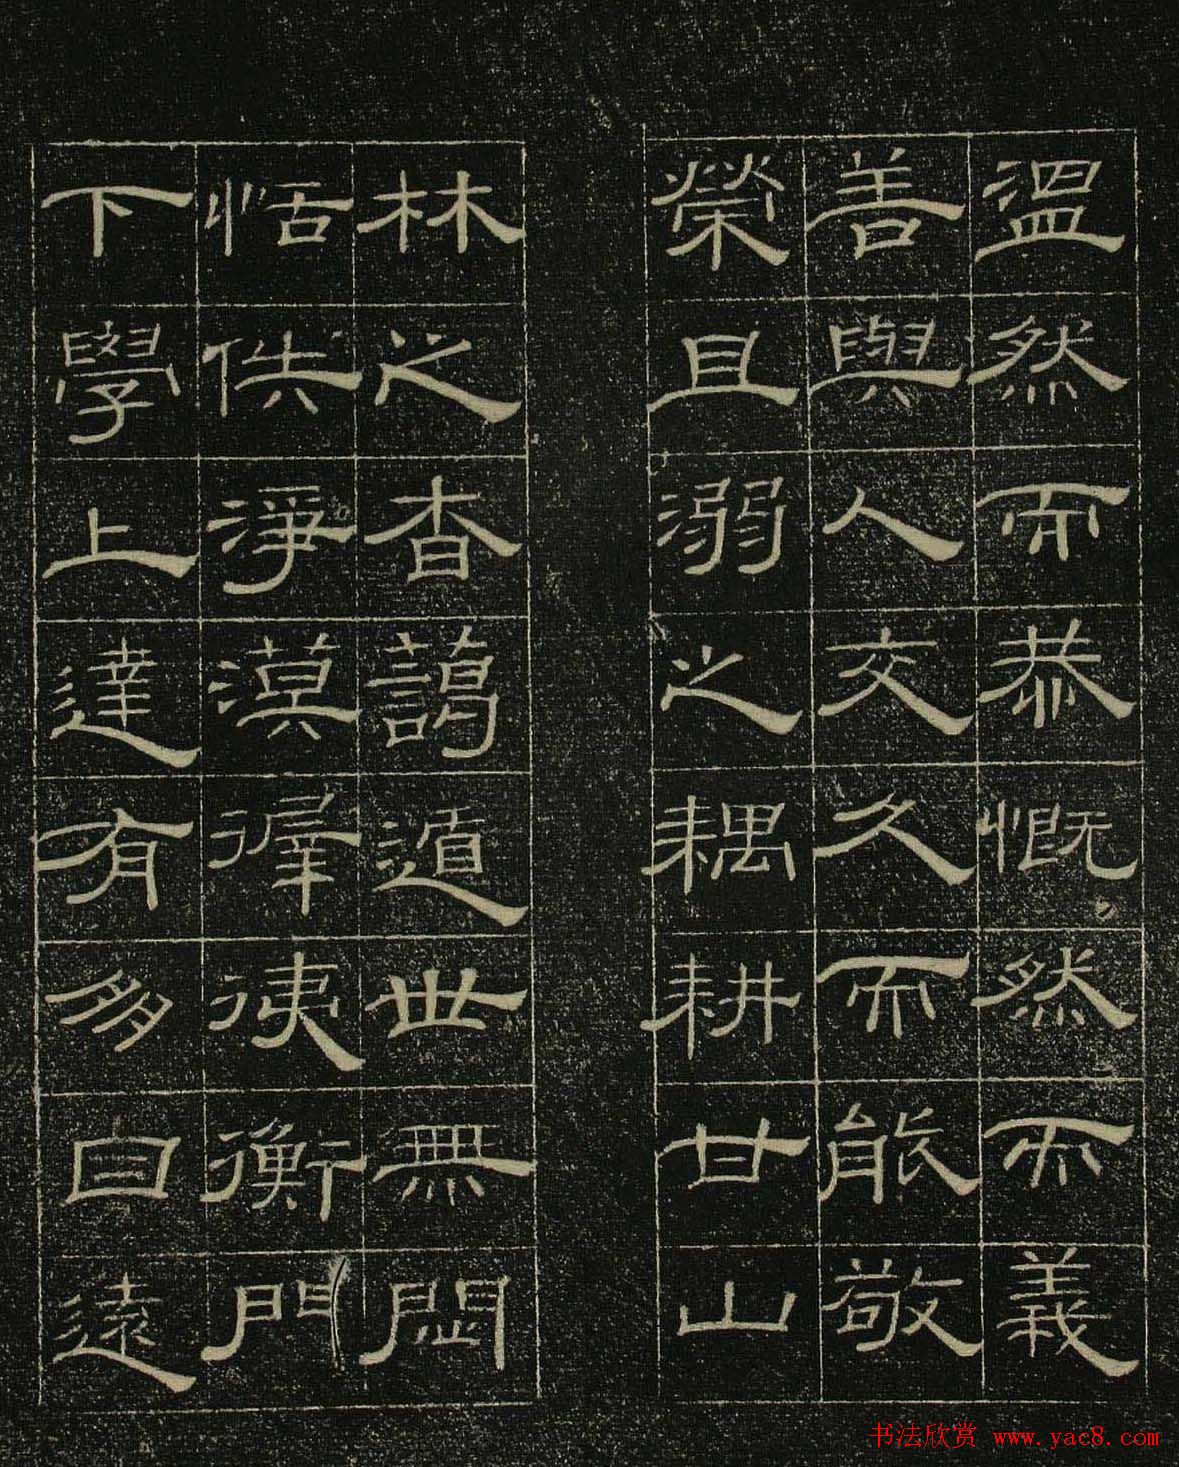 溫然而恭慨然而義
善與人交久而能敬
榮且溺之耦耕甘山
林之杳藹遁世無悶
恬供淨漠徲𢓡衡門
下學上達有多自遠
书法欣赏 www.yac8.com